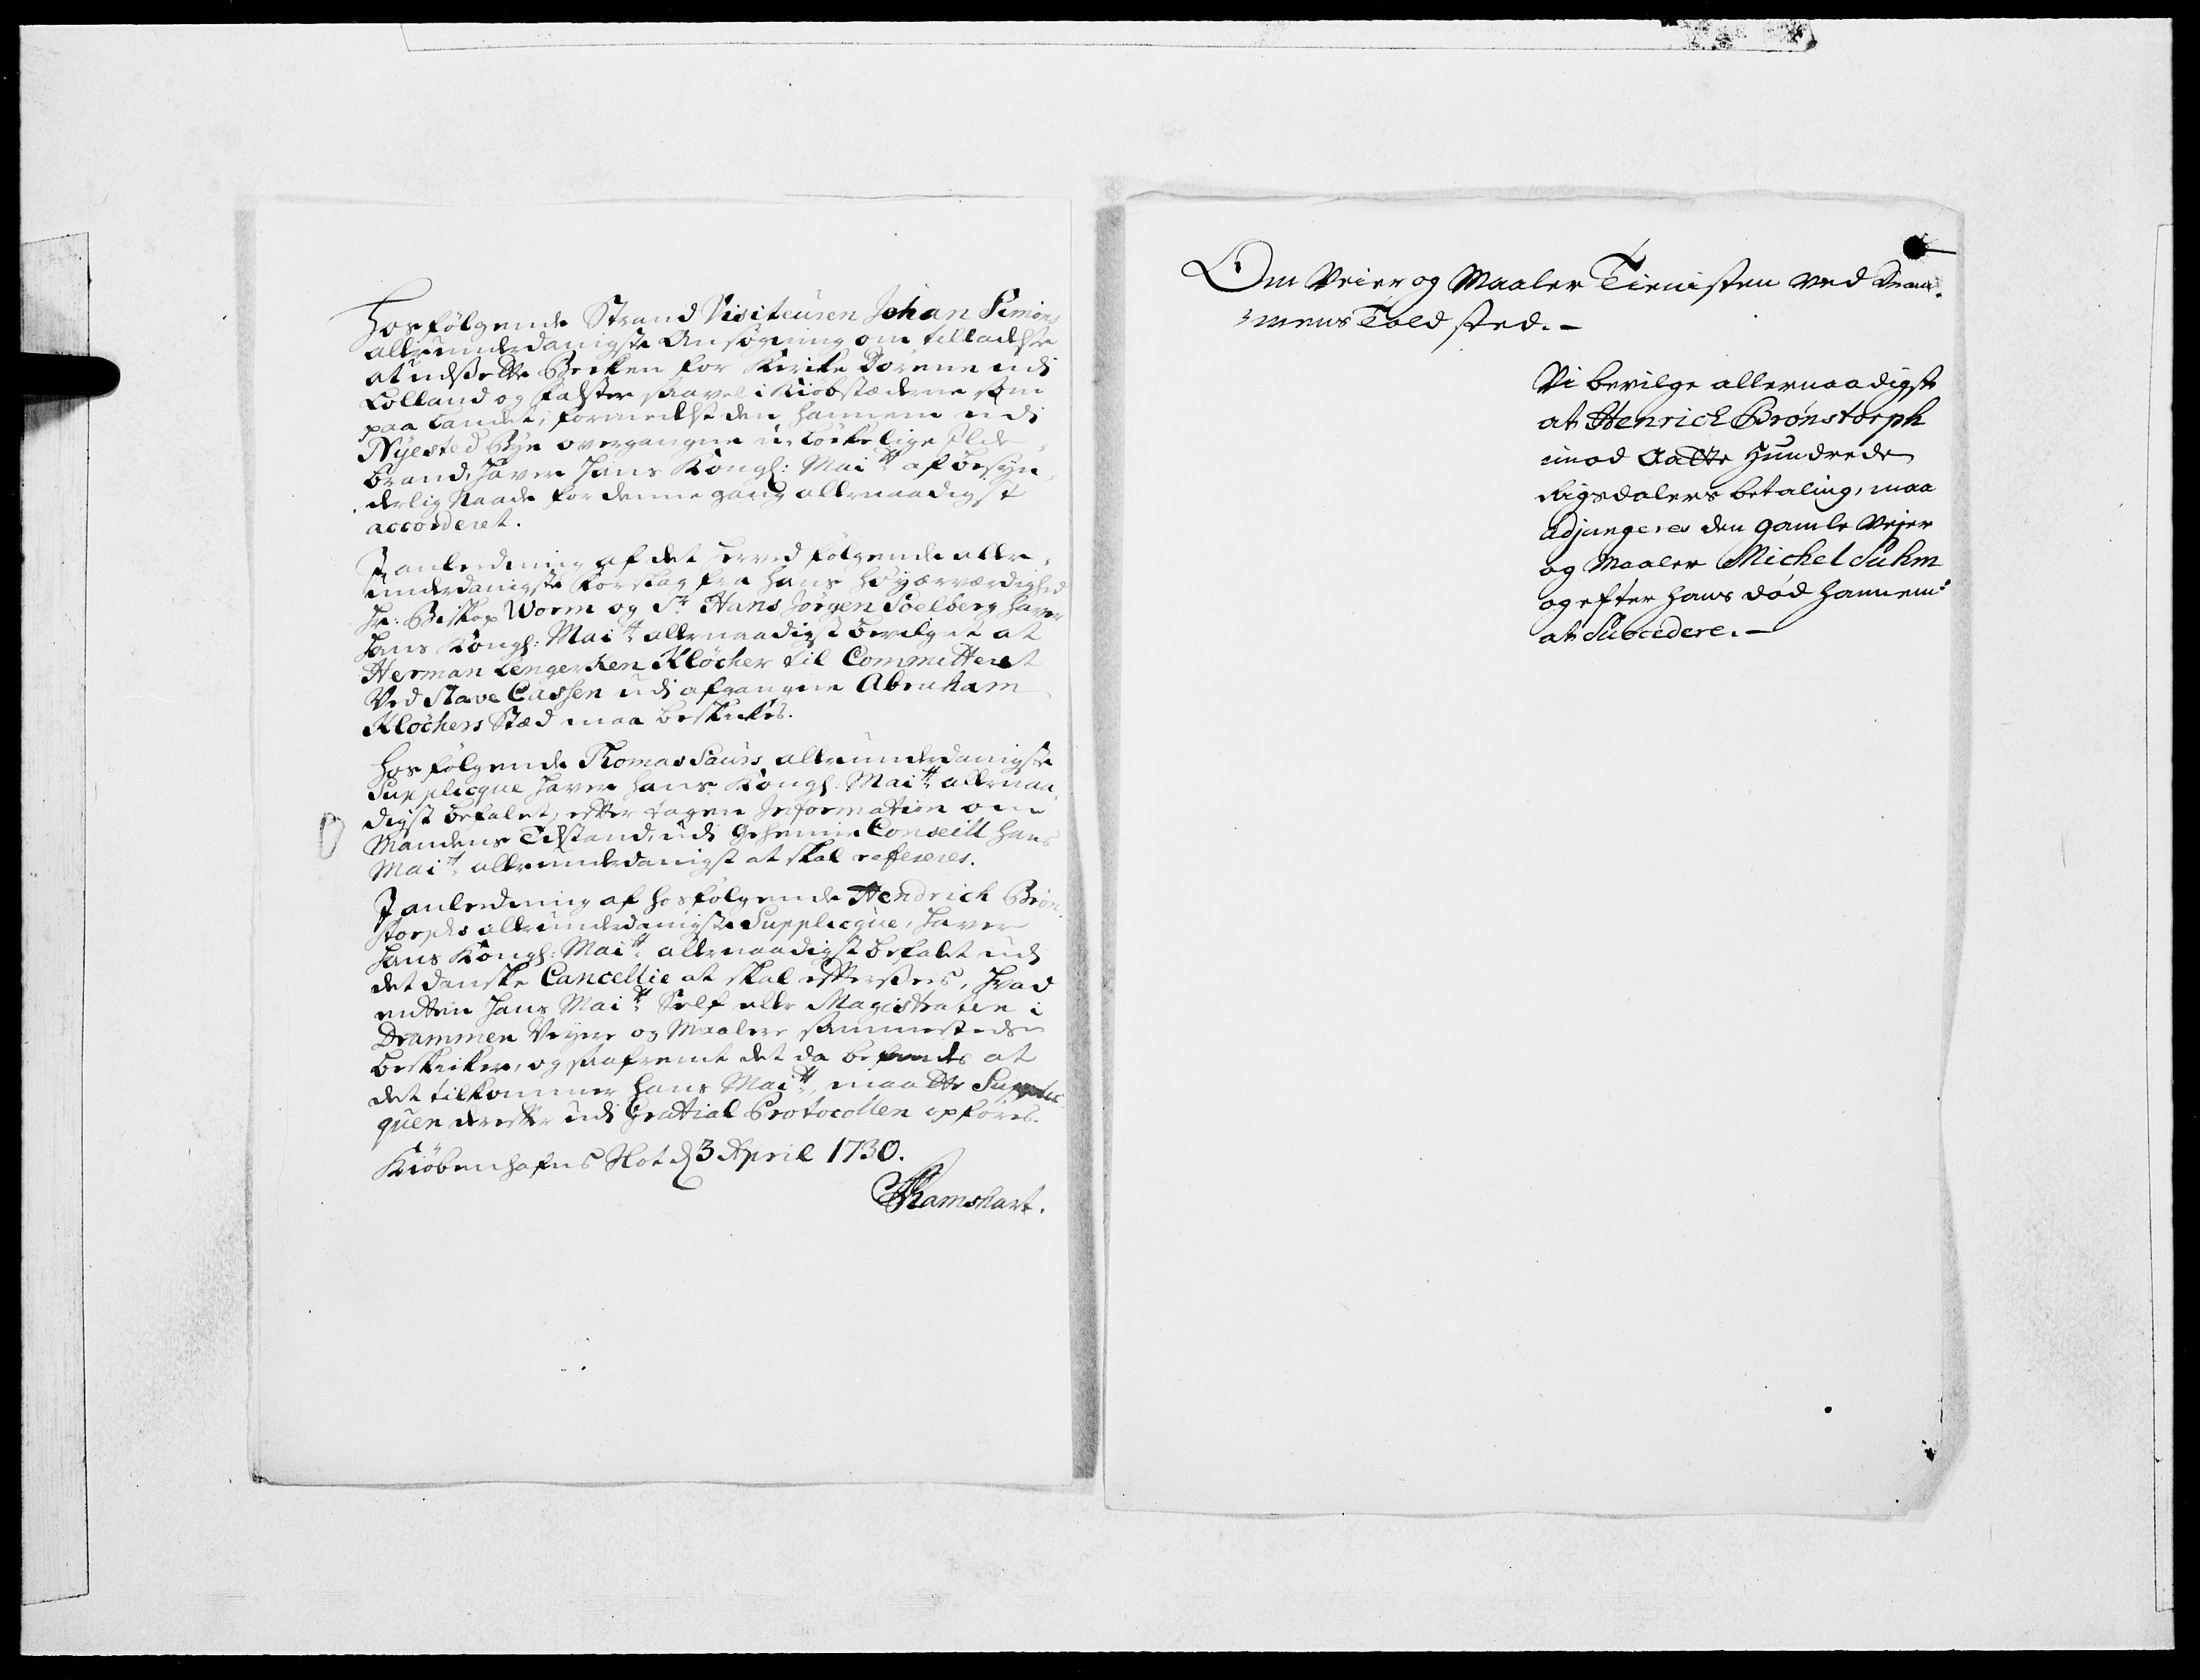 Hosfølgende Strand Visiteuren Johan Simons
allerunderdanigste Ansøgning om tilladelse
at udsætte Becken for Kirke Dørene udi
Lolland og Falster saavel i Kiøbstæderne som
paa Landet, formedelst den hannem udi
Nyested Bye overgangne u-lökkelige Ilde-
brand, haver Hans Kongl: Maitt af besyn-
derlig Naade for denne gang allernaadigst
accorderet.
I anledning af det herved følgende aller-
underdanigste Forslag fra Hans Höyærværdighed
Hr: Biskop Worm og Sr Hans Jörgen Soelberg haver
Hans Kongl: Maitt allernaadigst bevilget at
Herman Lengerken Klöcker til Committeret
Ved Slave Cassen udi afgangne Abraham
Klöckers Stæd maa beskikkes.
Hosfølgende Thomas Saurs allerunderdanigste
Supplicque haver Hans Kongl: Maitt allernaa-
digst befalet, efter tagen Information om
Mandens Tilstand, udi Geheime Conseill Hans
Maitt allerunderdanigst at skal refereres.
I anledning af hosfølgende Hendrich Brön-
storphs allerunderdanigste Supplicque, haver
Hans Kongl: Maitt allernaadigst befalet udi
det danske Cancellie at skal eftersees, hvad
enten Hans Maitt Self eller Magistraten i
Drammen Veyere og Maalere sammesteds
beskikker, og saafremt det da befindes at
det tilkommer Hans Maitt, maatte Supplic-
quen derefter udi Gratial Protocollen opføres.
Kiöbenhafns Slot d 3 April 1730.
Ramshart.
Om Veier og Maaler Tienisten ved Dram-
mens Told sted. -
Vi bevilge allernaadigst
at Henrich Brönstorph
imod Aatte Hundrede
Rigsdalers betaling, maa
adjungeres den gamle Vejer
og Maaler Michel Suhm
og efter hans død hannem
at Succedere. -